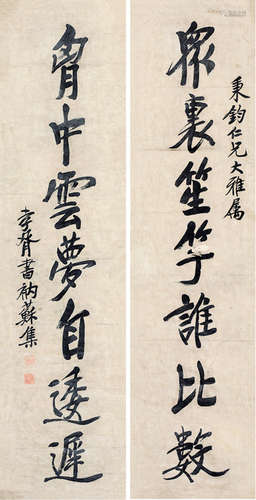 秉鈞仁兄大雅屬
眾裏笙竽誰比數
胷中雲夢自逶遲
孝胥書衲蘇集